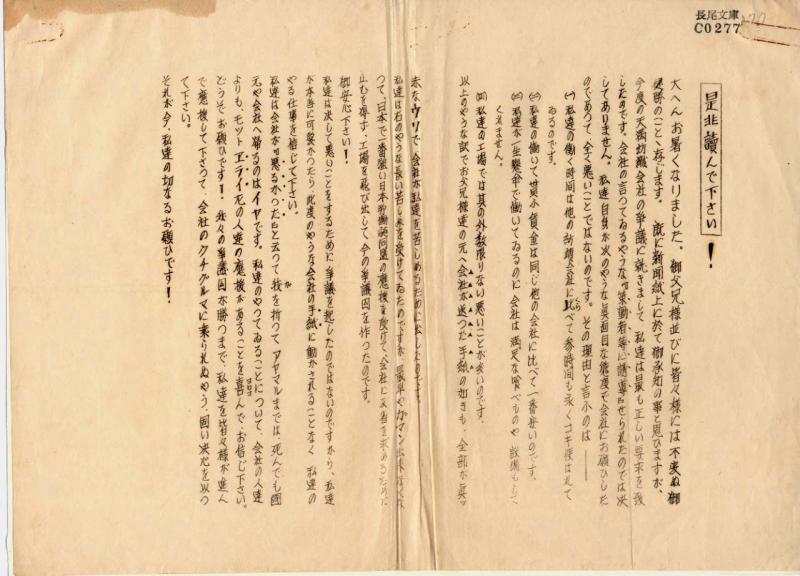 長尾文庫
C0277
277
是非讀んで下さい!
大へんお暑くなりました、御父兄様並びに皆々様には不変ぬ御
健勝のこと、存じます。 既に新聞紙上に於て御承知の事と思ひますが、
今度の天満紡織会社の争議に就きまして 私達は最も正しい要求を致
したのです。会社の言つてゐるやうな"策動者等に誘導"せられたのでは決
してありません。私達自身が次のやうな眞面目な態度で会社にお願ひした
のであつて、全く悪いことではないのです。その理由と言ふのは――
(一) 私達の働く時間は他の紡績会社に比べて参時間も永くコキ使はれて
ゐるのです。
(二) 私達の働いて貰ふ賃金は同じ他の会社に比べて一番安いのです、
(三) 私達が一生懸命で働いてゐるのに会社は満足な食べものや設備もして
くれません。
(四) 私達の工場では其の外数限りない悪いことが多いのです。
以上のやうな訳でお父兄様達の元へ会社が送つた手紙の如きも、全部が眞ッ
赤なウソで、会社が私達を苦しめるために出したのです。
私達は右のやうな長い苦しみを受けてゐたのですが、最早やガマン出来なくな
つて、日本で一番強い日本労働組合同盟の應援を受けて、会社に反省を求めるために
止むを得ず、工場を飛び出して今の争議団を作つたのです。
御安心下さい!
私達は決して悪いことをするために争議を起したのではないのですから、私達
が本当に可愛かつたら、此度のやうな会社の手紙に動かされることなく 私達の
やる仕事を信じて下さい。
私達は会社が"悪るかつた"と云つて我を折つてアヤマルまでは、死んでも國
元や会社へ帰るのはイヤです。私達のやつてゐることについて、会社の人達
よりも、モットエライ元の人達の應援があることを喜んで、お信じ下さい。
どうぞお願ひです! 我々の争議団が勝つまで、私達を皆々様が進ん
で應援して下さつて、会社のクチグルマに乗られぬやう、固い決心を以つ
て下さい。
それが今、私達の切なるお願ひです!